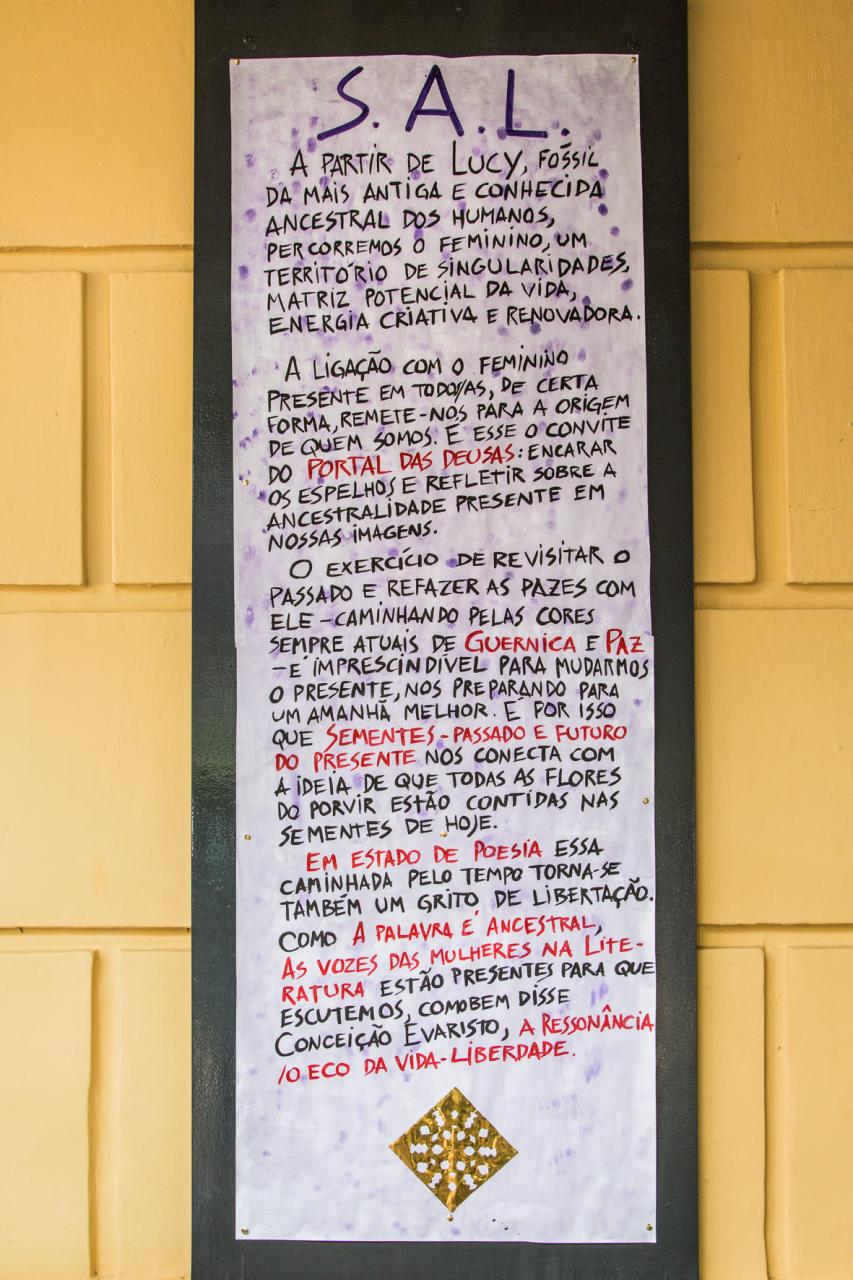 S. A. L.
A PARTIR DE LUCY, FÓSSIL
DA MAIS ANTIGA E CONHECIDA
ANCESTRAL DOS HUMANOS,
PERCORREMOS O FEMININO, UM
TERRITÓRIO DE SINGULARIDADES,
MATRIZ POTENCIAL DA VIDA,
ENERGIA CRIATIVA E RENOVADORA.
A LIGAÇÃO COM O FEMININO
PRESENTE EM TODO/AS, DE CERTA
FORMA, REMETE-NOS PARA A ORIGEM
DE QUEM SOMOS. E ESSE O CONVITE
DO PORTAL DAS DEUSAS: ENCARAR
OS ESPELHOS E REFLETIR SOBRE A
ANCESTRALIDADE PRESENTE EM
NOSSAS IMAGENS.
O EXERCÍCIO DE REVISITAR O
PASSADO E REFAZER AS PAZES COM
ELE - CAMINHANDO PELAS CORES
SEMPRE ATUAIS DE GUERNICA E PAZ
- É IMPRESCINDÍVEL PARA MUDARMOS
O PRESENTE, NOS PREPARANDO PARA
UM AMANHÃ MELHOR. É POR ISSO
QUE SEMENTES - PASSADO E FUTURO
DO PRESENTE NOS CONECTA COM
A IDEIA DE QUE TODAS AS FLORES
DO PORVIR ESTÃO CONTIDAS NAS
SEMENTES DE HOJE.
EM ESTADO DE POESIA ESSA
CAMINHADA PELO TEMPO TORNA-SE
TAMBÉM UM GRITO DE LIBERTAÇÃO.
COMO A PALAVRA É ANCESTRAL,
AS VOZES DAS MULHERES NA LITE-
RATURA ESTÃO PRESENTES PARA QUE
ESCUTEMOS, COMO BEM DISSE
CONCEIÇÃO EVARISTO, A RESSONÂNCIA
/O ECO DA VIDA-LIBERDADE.